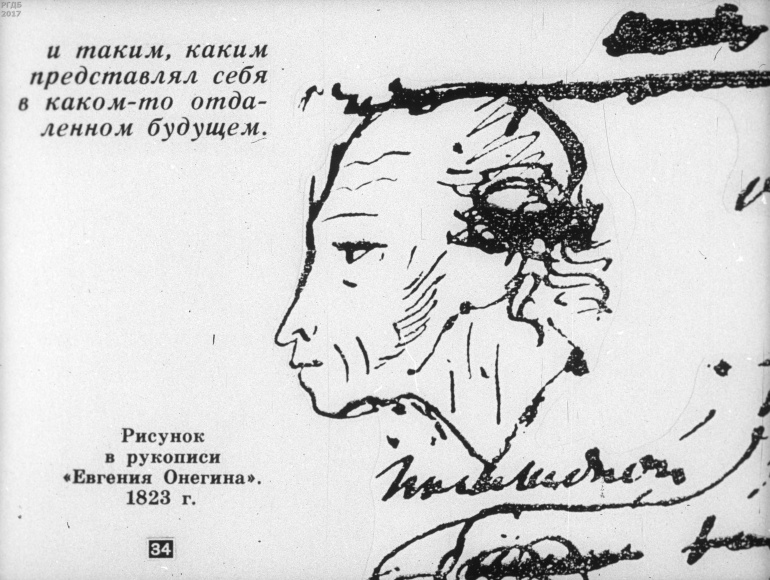 РГДБ
2017
и таким, каким
представлял себя
в каком-то отда-
ленном будущем.
Рисунок
в рукописи
«Евгения Онегина».
1823 г.
34